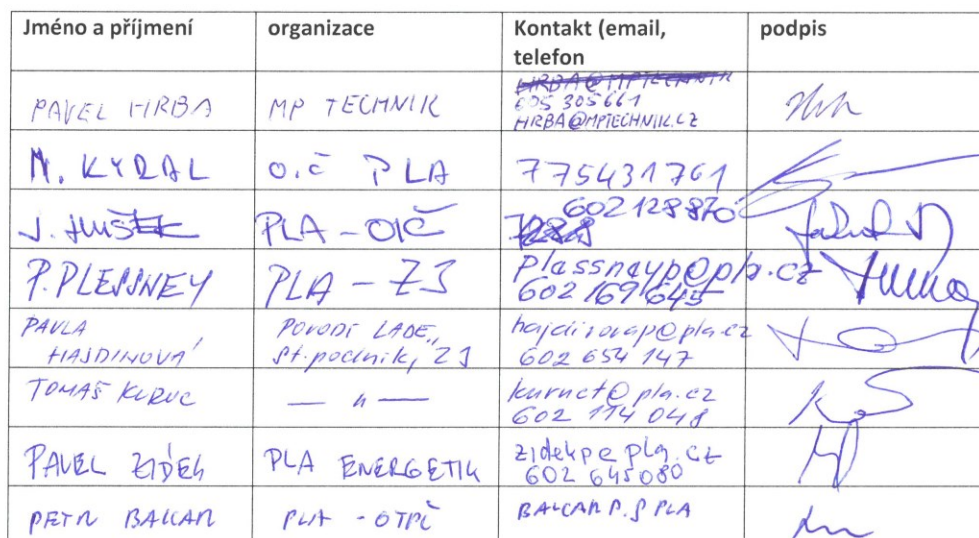 Jméno a příjmení organizace Kontakt (email, telefon podpis
PAVEL HRBA MP TECHNIK 605 305 661
HRBA@MPTECHNIK.CZ
M. KYRAL O.IČ PLA 775431761
J. PLA - OIČ 602 128 870
P. PLESSNEY PLA - Z3 plassneyp@pla.cz
602 169 645
PAVLA HAJDINOVÁ POVODÍ LABE, st. podnik, Z3 hajdinovap@pla.cz
602 654 147
TOMAŠ KURUC — 〃 — kuruct@pla.cz
602 114 048
PAVEL ZIDEK PLA ENERGETIK zidekp@pla.cz
602 645080
PETR BALCAR PLA - OTPČ BALCAR P. @ PLA